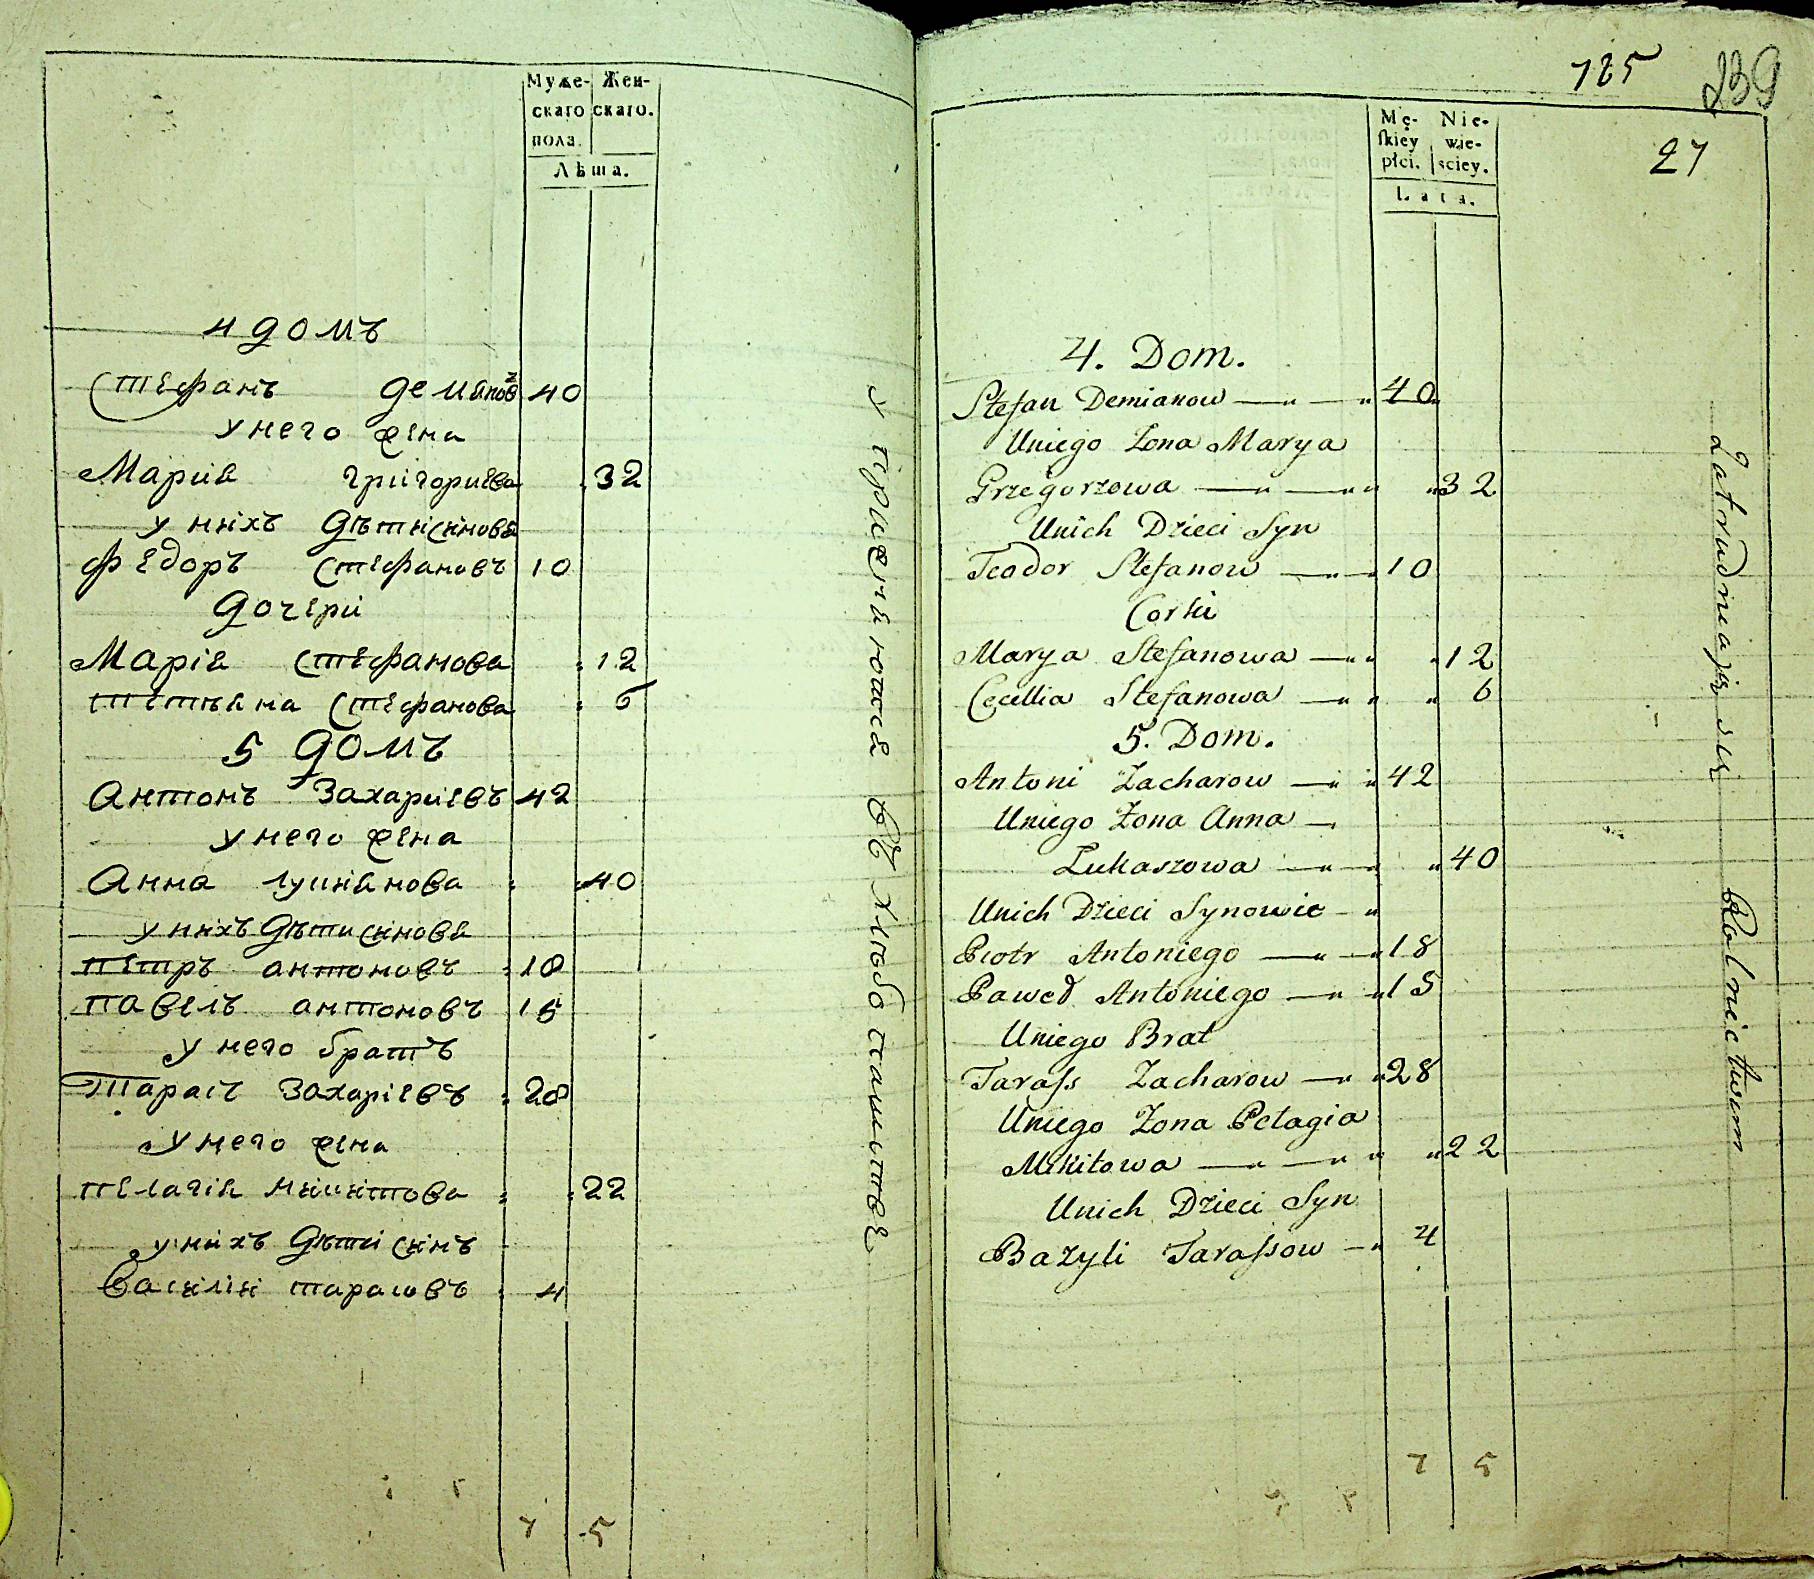 Муже- Жен-
скаго скаго.
пола.
Лѣта.
4 домъ
Стефанъ Демянов 40
у него жена
Мария григориева 32
у нихъ дѣти синовя
Федоръ Стефановъ 10
дочери
Марія Стефанова 12
Тетяна Стефанова 6
5 домъ
Антонъ Захариевъ 42
у него жена
Анна лукиянова 40
у нихъ дѣти синовя
петръ антоновъ 18
павелъ антоновъ 15
у него братъ
Тарасъ Захаріевъ 28
у него жена
пелагія микитова 22
у нихъ дѣти синъ
Василій тарасовъ 4
7 5
упражняются въ хлебопашестве
125 239
27
Mę- Nie-
skiey wie-
płci. sciey.
Lata.
4. Dom.
Stefan Demianow 40
Uniego Żona Marya
Grzegorzowa 32
Unich Dzieci Syn
Teodor Stefanow 10
Corki
Marya Stefanowa 12
Cecellia Stefanowa 6
5. Dom.
Antoni Zacharow 42
Uniego Żona Anna
Łukaszowa 40
Unich Dzieci Synowie
Piotr Antoniego 18
Paweł Antoniego 15
Uniego Brat
Tarass Zacharow 28
Uniego Żona Pelagia
Mikitowa 22
Unich Dzieci Syn
Bazyli Tarassow 4
7 5
Zatrudniają się Rolnictwem